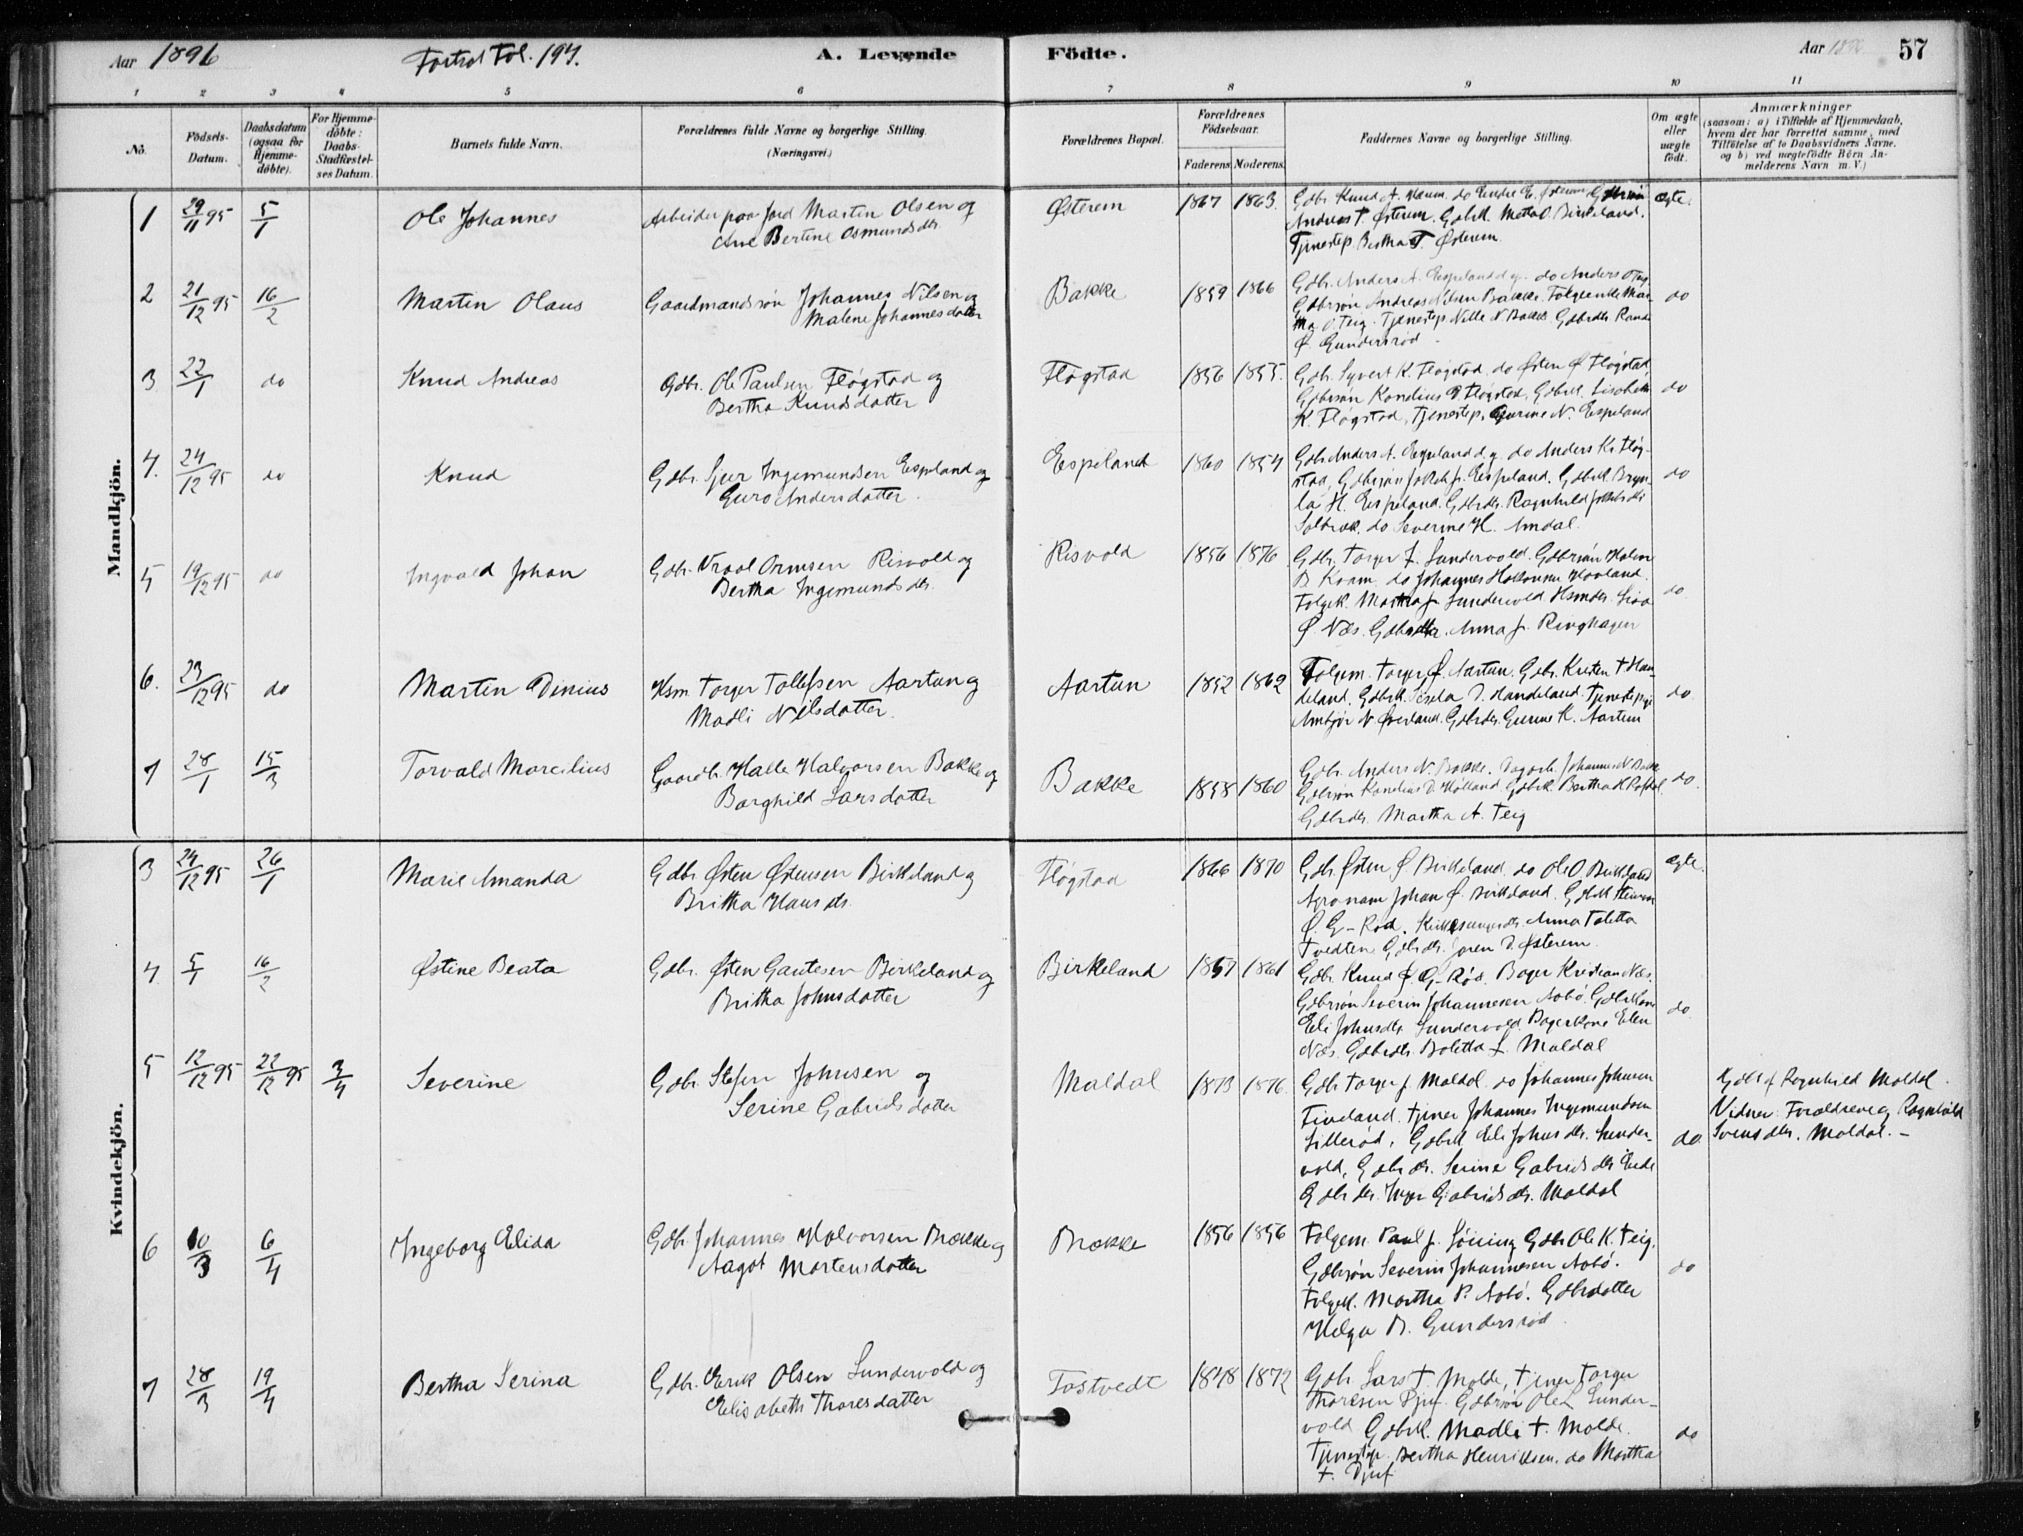 Aar 1896
Fortsat Fol. 197.
A. Levende
Födte.
Aar 1896
57
1 2 3 4 5 6 7 8 9 10 11
No.
Födsels-Datum.
Daabsdatum (ogsaa for Hjemme-döbte).
For Hjemme-döbte: Daabs-Stadfæstel-ses Datum.
Barnets fulde Navn.
Forældrenes fulde Navne og borgerlige Stilling.
(Næringsvei.)
Forældrenes Bopæl.
Forældrenes Födselsaar.
Faderens. Moderens.
Faddernes Navne og borgerlige Stilling.
Om ægte eller uægte födt.
Anmærkninger
(saasom: a) i Tilfælde af Hjemmedaab, hvem der har forrettet samme, med Tilföielse af to Daabsvidners Navne. og b) ved uægtefödte Börn Anmelderens Navn m. V.)
Mandkjön.
1 29/11 95 5/1 Ole Johannes
Arbeider paa Jord Martin Olsen og
Ane Bertine Osmundsdtr.
Østerem 1867 1863
Andreas T. Østerem. Gdbrk. Metta O. Birkeland.
Tjenestep. Bertha T. Østerem
ægte
2 21/12 95 16/2 Martin Olaus
Gaardmandssøn Johannes Nilsen og
Malene Johannesdatter
Bakke 1859 1866
Gdbr. Anders A. Espeland d.y. do Anders O Teig
Gdbrsøn Andreas Nilsen Bakke. Folgeenke Mar-
tha O Teig. Tjenestep. Nille N. Bakke. Gdbrdtr. Rande
Ø. Gundersrød
do
3 22/1 do Knud Andreas
Gdbr. Ole Paulsen Fløgstad og
Bertha Knudsdatter
Fløgstad 1856 1855.
Gdbr. Syvert K. Fløgstad. do Østen Ø Fløgstad
Gdbrsøn Kornelius P. Fløgstad, Gdbrk. Lisabeth
K. Fløgstad, Tjenestep. Gurine N. Espeland
do
4. 24/12 95 do Knud
Gdbr. Sjur Ingemundsen Espeland og
Guro Andersdatter.
Espeland 1860 1854
Gdbr. Anders A. Espeland d.y. do Anders K. Fløg-
stad, Gdbrsøn Jakob J. Espeland. Gdbrk. Bryn-
la H. Espeland. Gdbrdtr. Ragnhild Jakobsdtr
Solbrak, do Severine H. Amdal.
do
5 19/12 95 do Ingvald Johan
Gdbr. Vraal Ormsen Risvold og
Bertha Ingemundsdtr.
Risvold 1856 1876
Gdbr. Torger J. Sundervold. Gdbrsøn Halvor
B. Kvam, do Johannes Hallvorsen Hovland.
Folgek. Martha J. Sundervold Hsmdtr. Siva
Ø. Næs. Gdbrdtr. Anna J. Ringhagen
do
6. 23/12 95 do Martin Dinius
Hsm. Torger Tollefsen Aartun og
Madli Nilsdatter.
Aartun 1852 1862
Folgem. Torger Ø. Aartun. Gdbr. Kristen T Han-
deland. Gdbrk. Sissela D. Handeland. Tjenestepige
Ambjør N. Øverland. Gdbrdtr. Gurine K. Aartun
do
7 28/1 15/3 Torvald Marcilius
Gaardbr. Halle Halvorsen Bakke og
Borghild Larsdatter
Bakke 1858 1860
Gdbr. Anders N. Bakke. Dagarb. Johannes N. Bakke
Gdbrsøn Kornelius D. Hølland. Gdbrk. Bertha K. Rafdal.
Gdbrdtr. Martha A. Teig
do.
Kvindekjön.
3 24/12 95 26/1 Marie Amanda
Gdbr. Østen Østensen Birkeland og
Britha Hansdtr.
Fløgstad 1866 1870
Gdbr. Østen Ø Birkeland. do Ole O Birkeland
Agronom Johan Ø. Birkeland. Gdbrk
Ø. G-Rød. Kirkesangerdtr. Anna Taletta
Tvedten Gdbrdtr. Joren D. Østerem.
ægte
4. 5/1 16/2 Østine Beata
Gdbr. Østen Gautesen Birkeland og
Britha Johnsdatter
Birkeland 1857 1861
Gdbr. Knud Ø G-Rød. Bager Kristian Næs.
Gdbrsøn Severin Johannesen Aabø. Gdbrkone
Eli Johnsdtr. Sundervold. Bagerkone Elen
Næs. Gdbrdtr. Boletta J. Maldal
do
5 12/12 95 22/12 95 3/4 Severine
Gdbr. Stefen Johnsen og
Serine Gabrielsdatter
Maldal 1873 1876.
Gdbr Torger J. Maldal. do Johannes Johnsen
Fineland. Tjener Johannes Ingemundsen
Lillerød, Gdbrk. Eli Johnsdtr. Sunder-
vold, Gdbrdtr. Serine Gabrielsdtr Eide
Gdbrdtr. Inger Gabrielsdtr. Maldal
do
Gdbk. Ragnhild Maldal.
Vidner: Forældrene og Ragnhild
Svensdtr. Maldal. -
6 10/3 6/4 Ingeborg Elida
Gdbr. Johannes Halvorsen Brække og
Aagot Mortensdatter
Brække 1856 1856
Folgem. Paul J. Lining Gdbr. Ole K. Teig.
Gdbrsøn Severin Johannesen Aabø.
Folgek. Martha P. Aabø. Gdbrdatter
Helga B. Gundersrød
do
7 28/3 19/4 Bertha Serina
Gdbr. Erik Olsen Sundervold og
Elisabeth Thoresdatter
Tostvedt 1848 1872
Gdbr. Lars T. Molde, tjener Torger
Thorsen Djuf. Gdbrsøn Ole L Sunder-
vold Gdbrk. Madli T. Molde.
Tjenestep. Bertha Henriksen. do Martha
T. Djuf
do